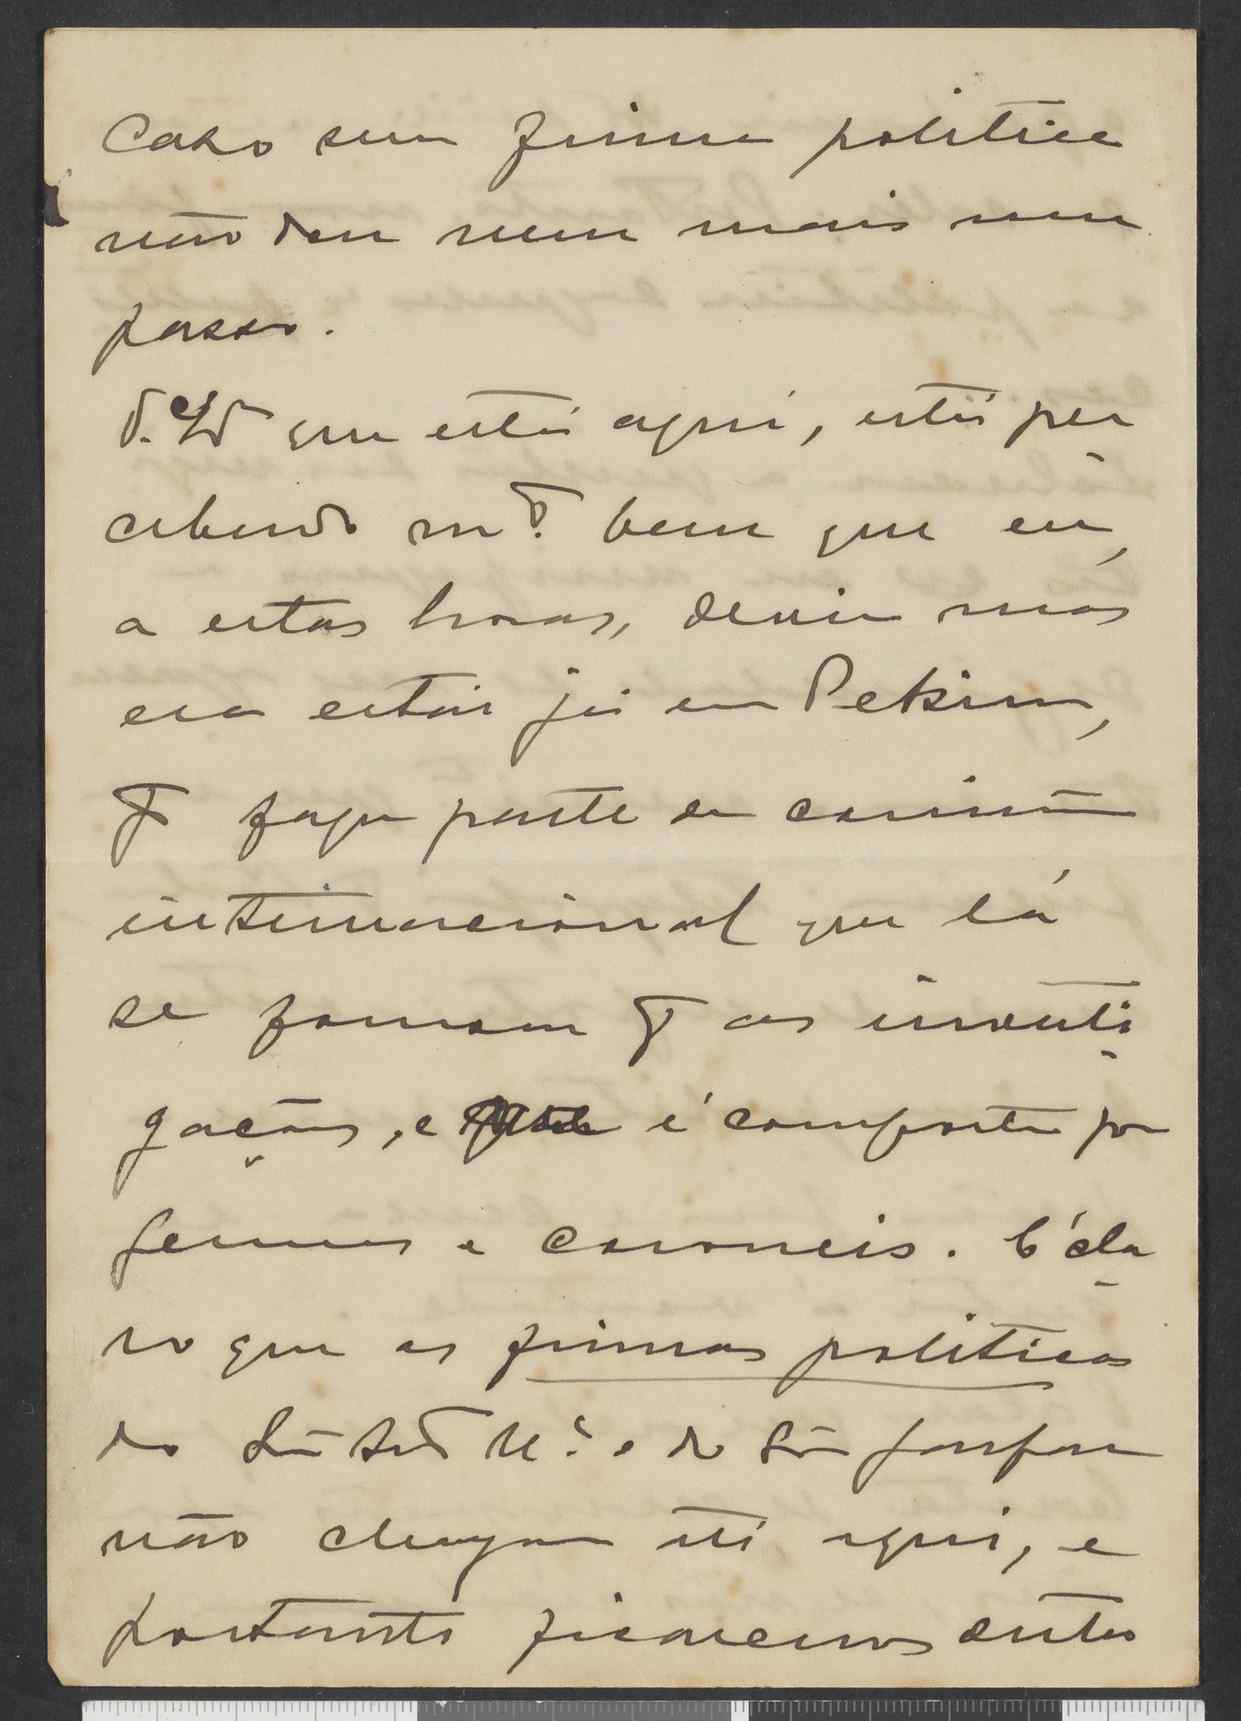 caso sem firma politica
não deu nem mais um
passo.
que está aqui, está per
cebendo m.to bem que eu,
a estas horas, devia mas
era estar já em Pekim,
p.a fazer parte da
internacional que lá
se formam p.a as investi
gações, e é composta por
e coroneis. É cla
ro que as firmas politicas
do e do
não chegam até aqui, e
portanto ficaremos